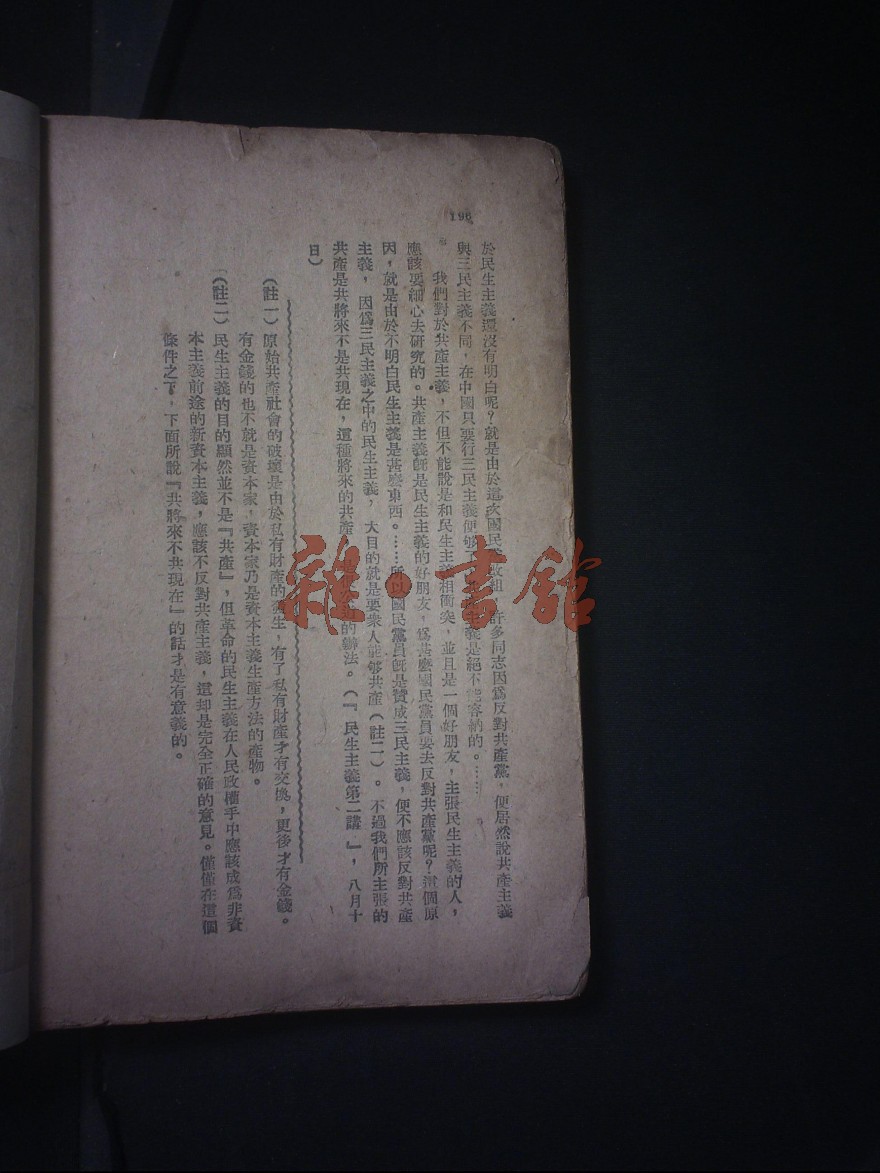 196
於民生主義還沒有明白呢？就是由於這次國民黨改組，許多同志因爲反對共產黨，便居然說共產主義
與三民主義不同，在中國只要行三民主義便够了，主義是絕不能容納的。……
我們對於共產主義，不但不能說是和民生主義相衝突，並且是一個好朋友，主張民生主義的人，
應該要細心去研究的。共產主義旣是民生主義的好朋友，爲甚麽國民黨員要去反對共產黨呢？這個原
因，就是由於不明白民生主義是甚麽東西。……所以國民黨員旣是贊成三民主義，便不應該反對共產
主義，因爲三民主義之中的民生主義，大目的就是要衆人能够共產（註二）。不過我們所主張的
共產是共將來不是共現在，這種將來的共產的辦法。（『民生主義第二講』，八月十
日）
（註一）原始共產社會的破壞是由於私有財產的發生，有了私有財產才有交換，更後才有金錢。
有金錢的也不就是資本家，資本家乃是資本主義生產方法的產物。
（註二）民生主義的目的顯然並不是『共產』，但革命的民生主義在人民政權手中應該成爲非資
本主義前途的新資本主義，應該不反對共產主義，這却是完全正確的意見。僅僅在這個
條件之下，下面所說『共將來不共現在』的話才是有意義的。
雜·書館